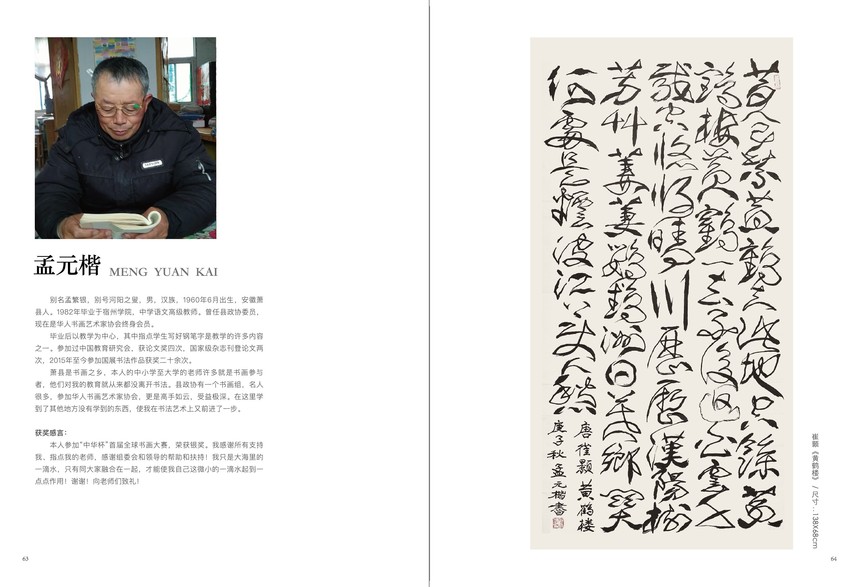 孟元楷 MENG YUAN KAI
别名孟繁银，别号河阳之叟，男，汉族，1960年6月出生，安徽萧
县人。1982年毕业于宿州学院，中学语文高级教师。曾任县政协委员，
现在是华人书画艺术家协会终身会员。
毕业后以教学为中心，其中指点学生写好钢笔字是教学的许多内容
之一。参加过中国教育研究会，获论文奖四次，国家级杂志刊登论文两
次，2015年至今参加国展书法作品获奖二十余次。
萧县是书画之乡，本人的中小学至大学的老师许多就是书画参与
者，他们对我的教育就从来都没离开书法。县政协有一个书画组，名人
很多，参加华人书画艺术家协会，更是高手如云，受益极深。在这里学
到了其他地方没有学到的东西，使我在书法艺术上又前进了一步。
获奖感言：
本人参加“中华杯”首届全球书画大赛，荣获银奖。我感谢所有支持
我、指点我的老师，感谢组委会和领导的帮助和扶持！我只是大海里的
一滴水，只有同大家融合在一起，才能使我自己这微小的一滴水起到一
点点作用！谢谢！向老师们致礼！
63
昔人已乘黄鶴去此地空餘黄
鶴楼黄鶴一去不復返白雲千
載空悠悠晴川歷歷漢陽樹
芳草萋萋鸚鵡洲日暮鄉關
何處是煙波江上使人愁
唐崔顥黄鶴楼
庚子秋孟元楷書
崔颢《黄鹤楼》/ 尺寸：138X68cm
64